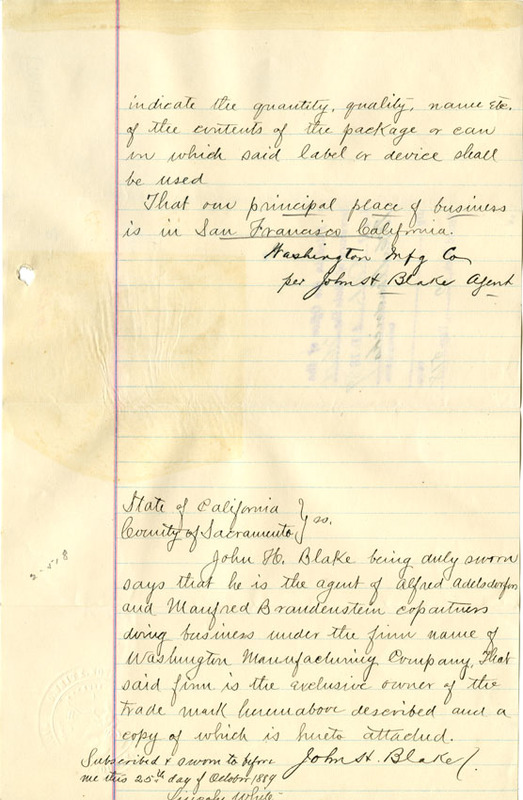 indicate the quantity, quality, name etc.
of the contents of the package or can
on which said label or device shall
be used
That our principal place of business
is in San Francisco California.
Washington Mfg Co
per John H. Blake Agent
State of California } ss.
County of Sacramento
John H. Blake being duly sworn
says that he is the agent of Alfred Adelsdorfer
and Manfred Brandenstein copartners
doing business under the firm name of
Washington Manufacturing Company, That
said firm is the exclusive owner of the
trade mark hereinabove described and a
copy of which is hereto attached.
Subscribed & sworn to before
me this 25th day of October 1889
John H. Blake
Lincoln White